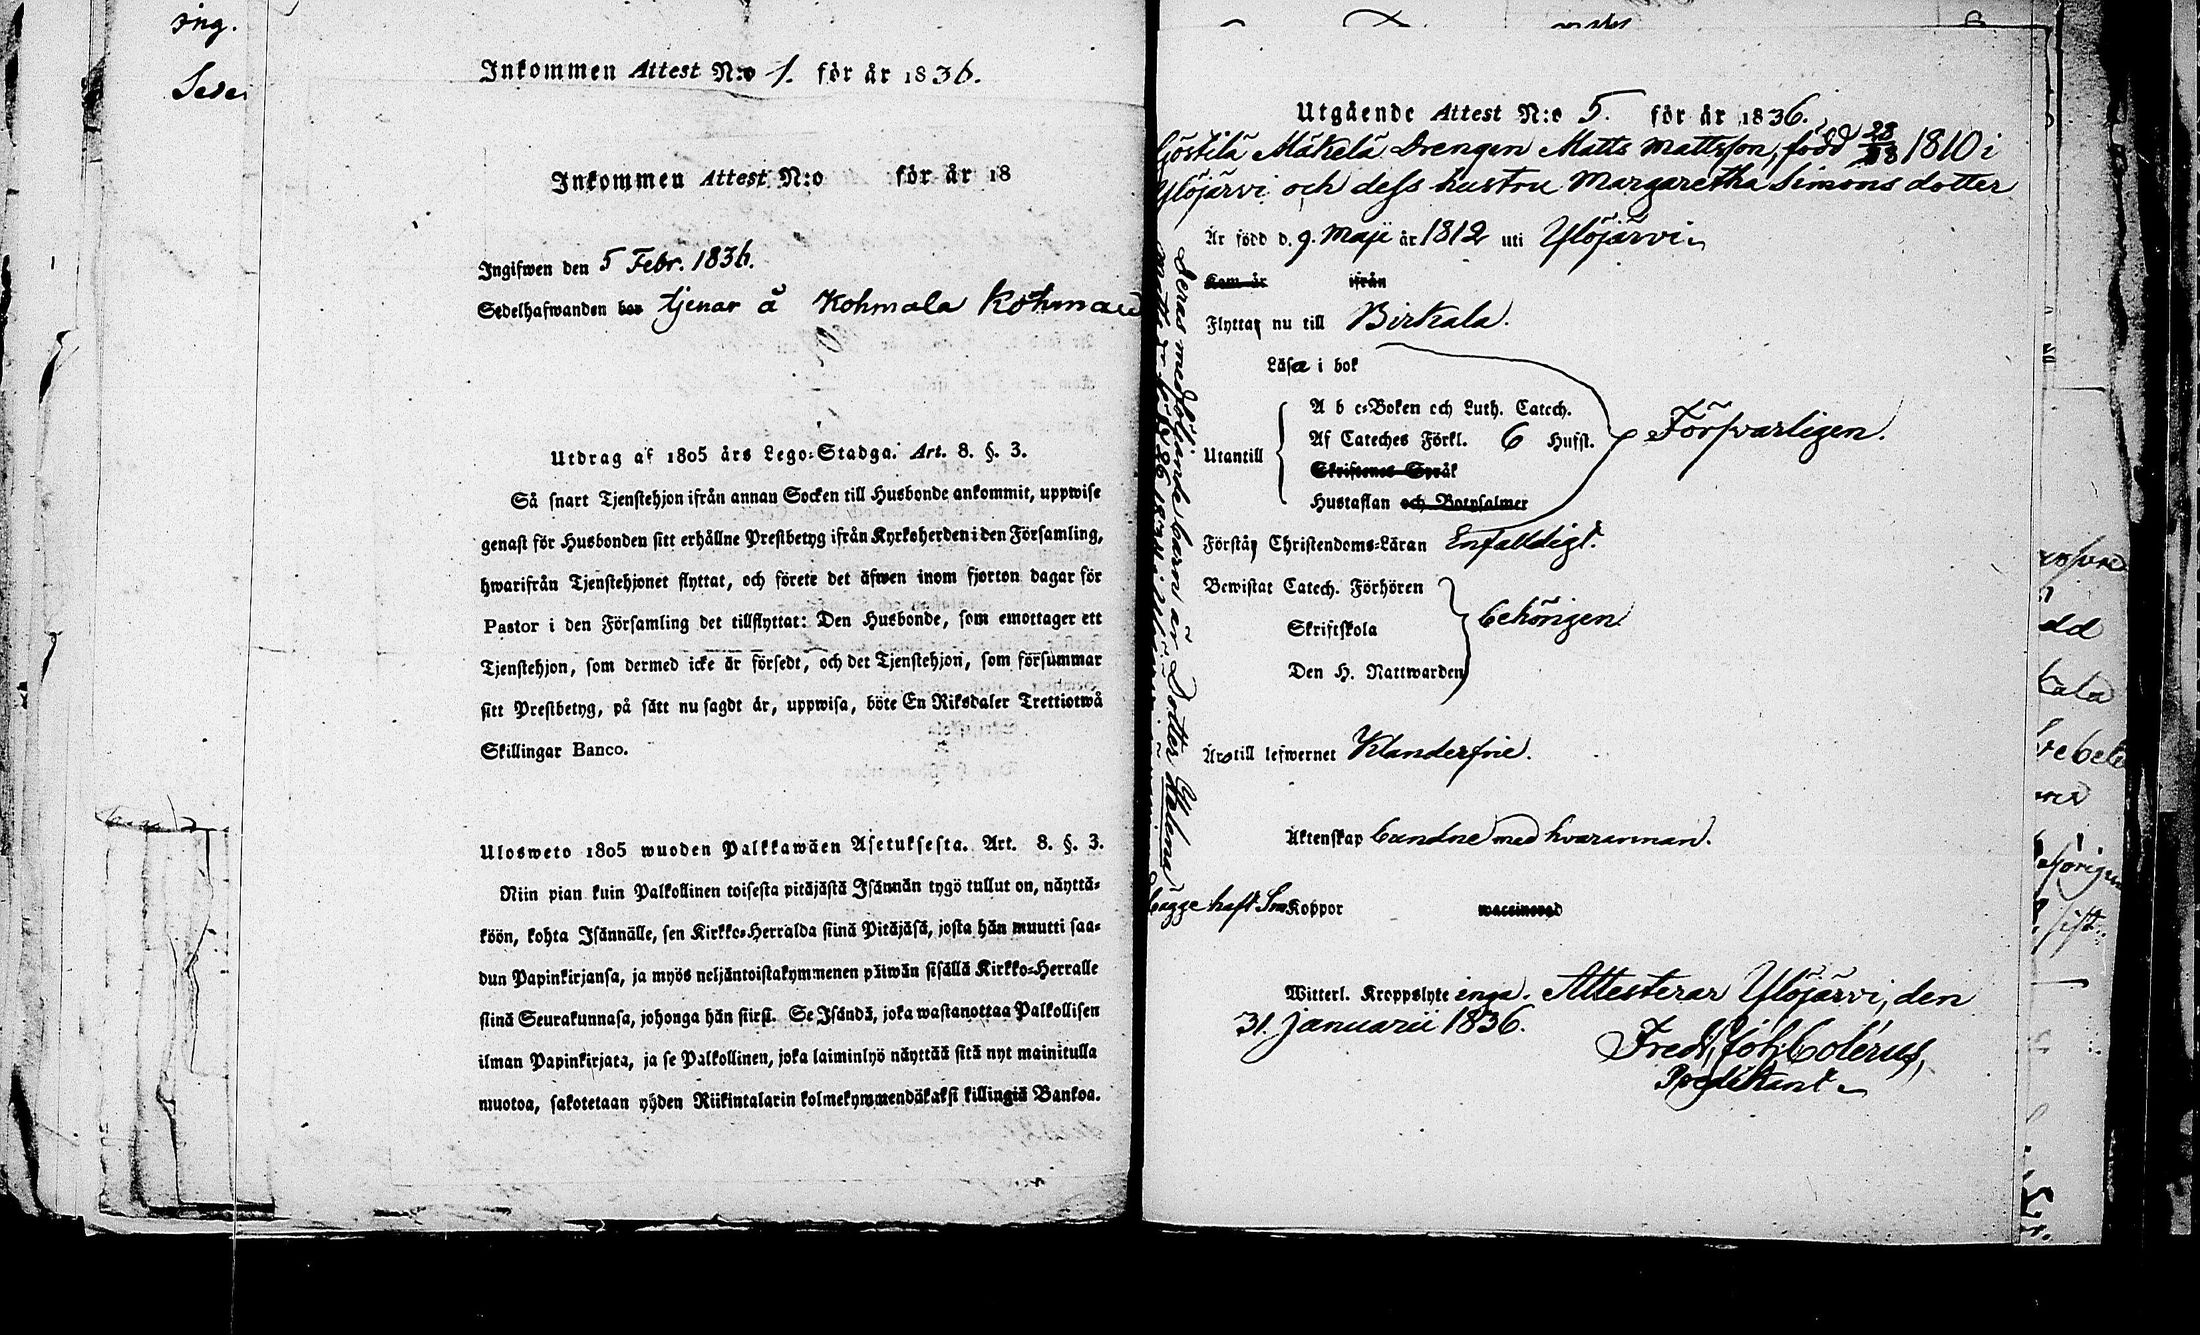 ing.
Sede
Inkommen Attest N:o 1. för år 1836.
Inkommen Attest N:o för år 18
Ingifwen den 5 Febr. 1836.
Sedelhafwanden har tjenar å Kohmala
Utdrag af 1805 års Lego-Stadga. Art. 8. §. 3.
Så snart Tjenstehjon ifrån annan Socken till Husbonde ankommit, uppwise
genast för Husbonden sitt erhållne Prestbetyg ifrån Kyrkoherden i den Församling,
hwarifrån Tjenstehjonet flyttat, och förete det äfwen inom fjorton dagar för
Pastor i den Församling det tillflyttat: Den Husbonde, som emottager ett
Tjenstehjon, som dermed icke är försedt, och det Tjenstehjon, som försummar
sitt Prestbetyg, på sätt nu sagdt är, uppwisa, böte En Riksdaler Trettiotwå
Skillingar Banco.
Ulosweto 1805 wuoden Palkkawäen Asetuksesta. Art. 8. §. 3.
Niin pian kuin Palkollinen toisesta pitäjästä Isännän tygö tullut on, näyttä-
köön, kohta Isännälle, sen Kirkko-Herralda siinä Pitäjäsä, josta hän muutti saa-
dun Papinkirjansa, ja myös neljäntoistakymmenen päiwän sisällä Kirkko-Herralle
siinä Seurakunnasa, johonga hän siirsi. Se Isändä, joka wastanottaa Palkollisen
ilman Papinkirjata, ja se Palkollinen, joka laiminlyö näyttää sitä nyt mainitulla
muotoa, sakotetaan yhden Riikintalarin kolmekymmendäkaksi killingiä Bankoa.
Utgående Attest N:o 5. för år 1836.
Mäkelä Drengen Matts Mattsson, född 1810 i
Ylöjärvi och dess hustru Margaretha Simons dotter
Är född d. 9. Maji år 1812 uti Ylöjärvi
Kom år ifrån
Flytta nu till Birkala.
Läsa i bok
A b c-Boken och Luth. Catech.
Af Cateches Förkl. 6 Hufst.
Utantill
Försvarligen.
Skriftenes Språk
Hustaflan och Botpsalmer
Förstå Christendoms-Läran Enfalldigt.
Bewistat Catech. Förhören
Skriftskola
behörigen
Den H. Nattwarden
Äro till lefwernet Klanderfrie.
Äktenskap bundne med hvarannan.
bägge haft Små Koppor waccinerad
Witterl. Kroppslyte inga. Attesterar Ylöjärvi, den
31. Januarii 1836.
Fredr. Joh. Colerus,
Predikant
Deras medföljande barn är Dotter Helena